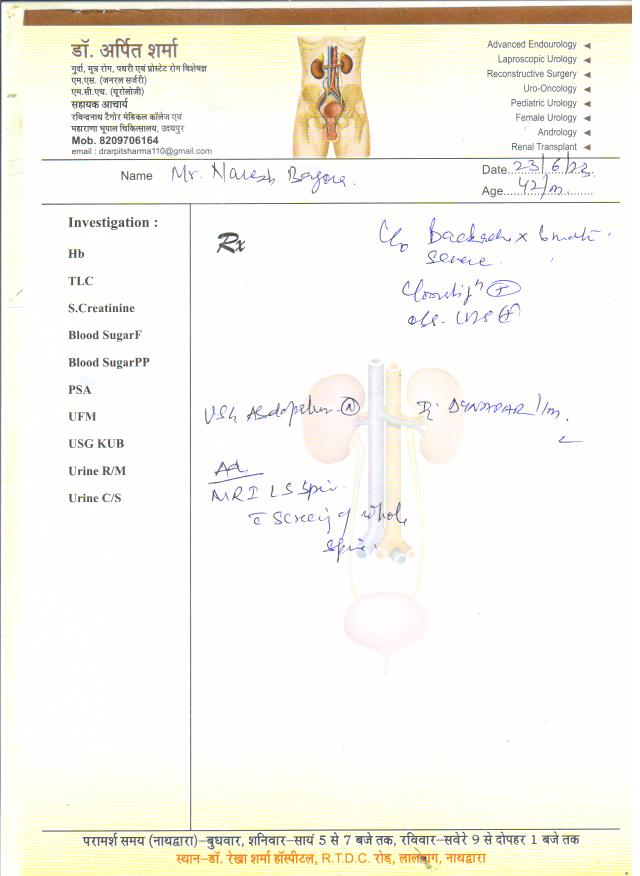 डॉ. अर्पित शर्मा
गुर्दा, मूत्र रोग, पथरी एवं प्रोस्टेट रोग विशेषज्ञ
एम.एस. (जनरल सर्जरी)
एम.सी.एच. (यूरोलोजी)
सहायक आचार्य
रविन्द्रनाथ टैगोर मेडिकल कॉलेज एवं
महाराणा भूपाल चिकित्सालय, उदयपुर
Mob. 8209706164
email : drarpitsharma110@gmail.com
Advanced Endourology
Laproscopic Urology
Reconstructive Surgery
Uro-Oncology
Pediatric Urology
Female Urology
Andrology
Renal Transplant
Name Mr. Naresh
Date 23/6/23
Age 42/m
Investigation :
Hb
TLC
S.Creatinine
Blood SugarF
Blood SugarPP
PSA
UFM
USG KUB
Urine R/M
Urine C/S
Rx
C/o Backache x 6
Severe
USG
DYNAPAR 1/m.
Ad
MRI LS Spine
c Screeing of whole
Spine.
परामर्श समय (नाथद्वारा)–बुधवार, शनिवार–सायं 5 से 7 बजे तक, रविवार–सवेरे 9 से दोपहर 1 बजे तक
स्थान–डॉ. रेखा शर्मा हॉस्पीटल, R.T.D.C. रोड़, लालबाग, नाथद्वारा